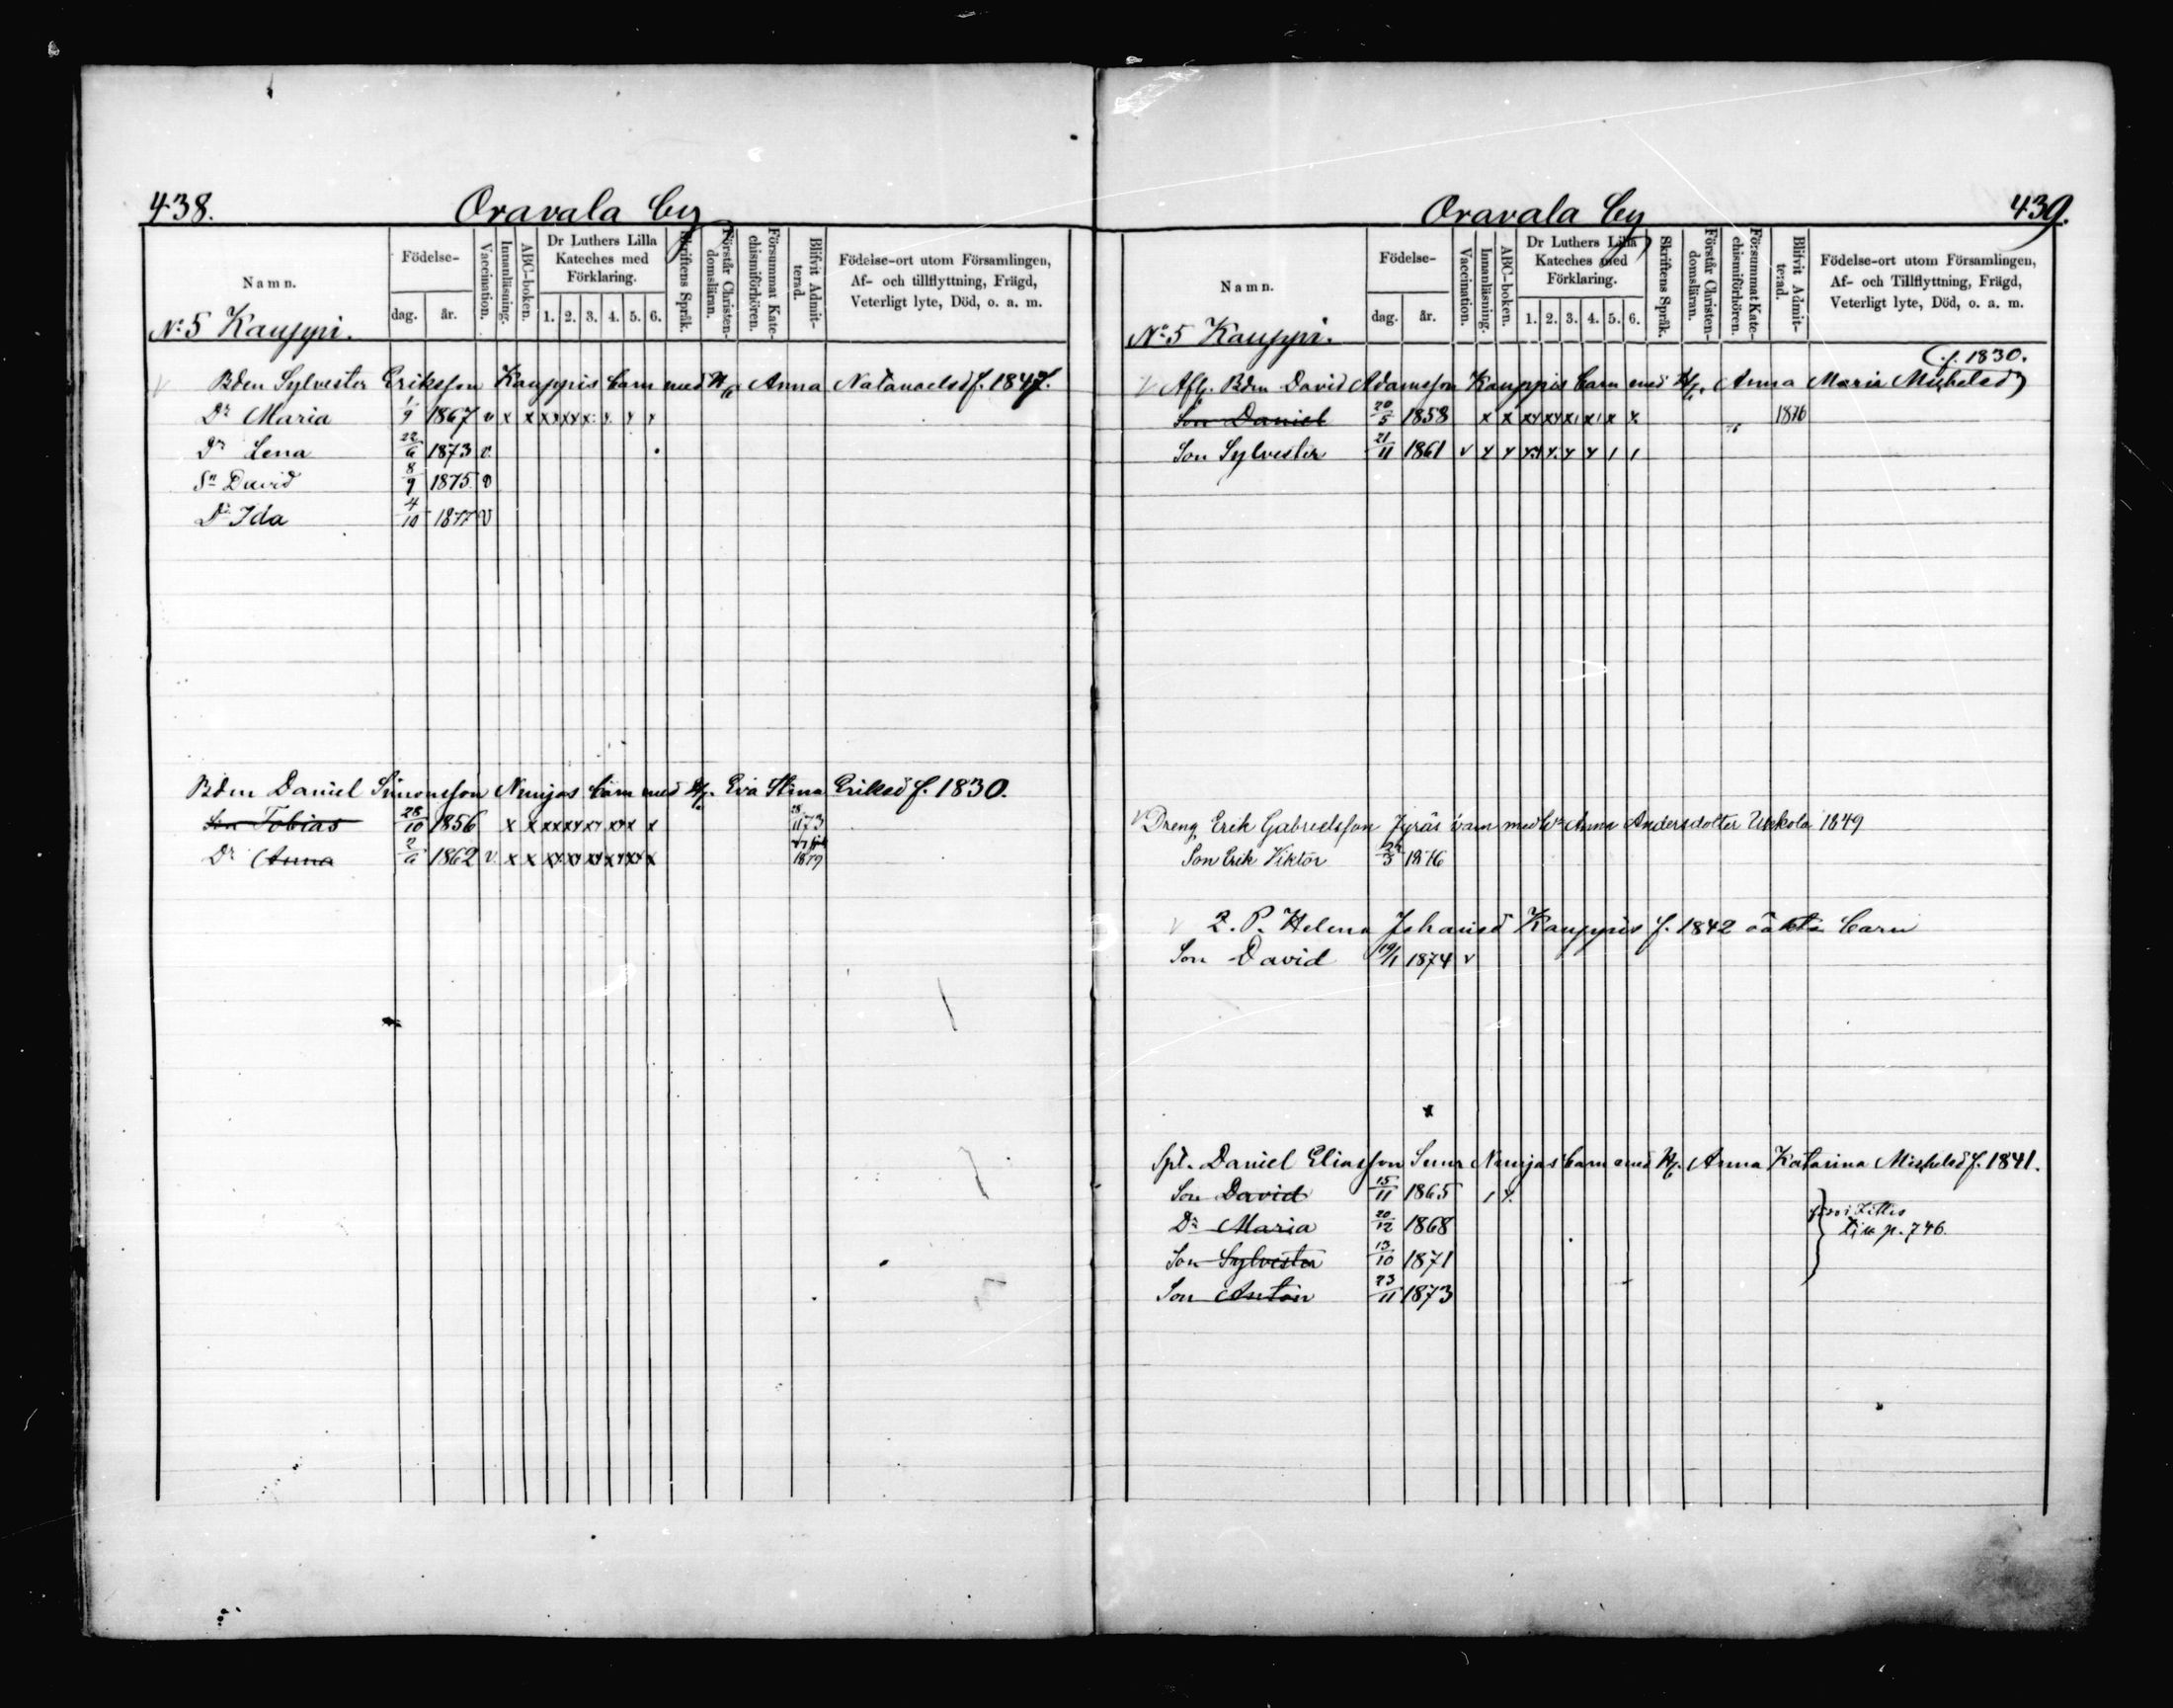 438.
Oravala by
Namn.
Födelse-
dag.
år.
Vaccination.
Innanläsning.
ABC-boken.
Dr Luthers Lilla
Kateches med
Förklaring.
1. 2. 3. 4. 5. 6.
Skriftens Språk.
Förstår Christen-
domsläran.
Försummat Kate-
chismiförhören.
Blifvit Admit-
terad.
Födelse-ort utom Församlingen,
Af- och tillflyttning, Frägd,
Veterligt lyte, Död, o. a. m.
No 5 Kauppi.
v Bden Sylvester Eriksson Kauppis barn med H/a Anna Natanaelsd f. 1847.
Dr Maria 1/9 1867 v x x
Dr Lena 22/6 1873 v.
Sn David 8/9 1875 v
Dr Ida 4/10 1877 v
Bdm Daniel Simonsson Nunjas barn med H/. Eva Stina Eriksd f. 1830.
Son Tobias 28/10 1856 x x
Dr Anna 2/6 1862 v. x x 1879
Oravala by
439.
Namn.
Födelse-
dag.
år.
Vaccination.
Innanläsning.
ABC-boken.
Dr Luthers Lilla
Kateches med
Förklaring.
1. 2. 3. 4. 5. 6.
Skriftens Språk.
Förstår Christen-
domsläran.
Försummat Kate-
chismiförhören.
Blifvit Admit-
terad.
Födelse-ort utom Församlingen,
Af- och Tillflyttning, Frägd,
Veterligt lyte, Död, o. a. m.
No 5 Kauppi.
f. 1830.
v Afl. Bdm David Adamsson Kauppis barn med H/. Anna Maria Michelsd
Son Daniel 20/5 1858 x x 1876
Son Sylvester 21/11 1861 v
v Dreng Erik Gabrielsson Jyräs barn med Anna Andersdotter Ukkola 1849
Son Erik Viktor 1876
v Q. P. Helena Johansd Kauppis f. 1842 oäkta barn
Son David 19/1 1874 v
Spt. Daniel Eliasson Nunjas barn med H/. Anna Katarina Michelsd f. 1841.
Son David 15/11 1865
Dr Maria 20/12 1868
p. 746.
Son Sylvester 13/10 1871
Son Anton 23/11 1873